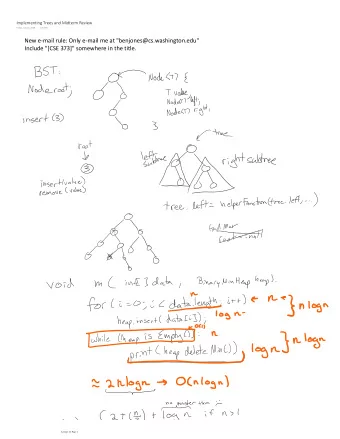 Implementing Trees and Midterm Review
New e-mail rule: Only e-mail me at "benjones@cs.washington.edu"
Include "[CSE 373]" somewhere in the title.
BST:
Node root;
Node<T> {
T value
Node<T> left;
Node<T> right;
}
insert(3)
root
3
tree
left subtree
right subtree
insert(value)
remove(value)
tree.left = helperFunction(tree.left, ...)
void m( int[] data, BinaryMinHeap heap).
for (i=0; i< data.length, i++) ← n
heap.insert( data[i]); log n
} n log n
while (!heap is Empty()) n
print( heap.deleteMin()) log n
} n log n
≈ 2n log n → O(n log n)
no greater than
{ 2T(n/2) + log n if n>1